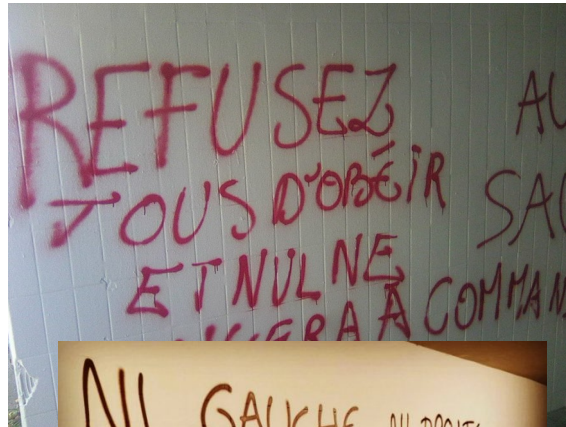 REFUSEZ
TOUS D'OBÉIR
ET NUL NE
À COMMAN
AU
SAU
NI GAUCHE NI DROITE